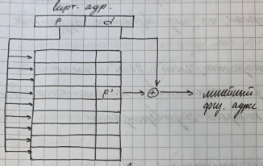 вирт. адр.
p d
p'
линейный
физ. адрес